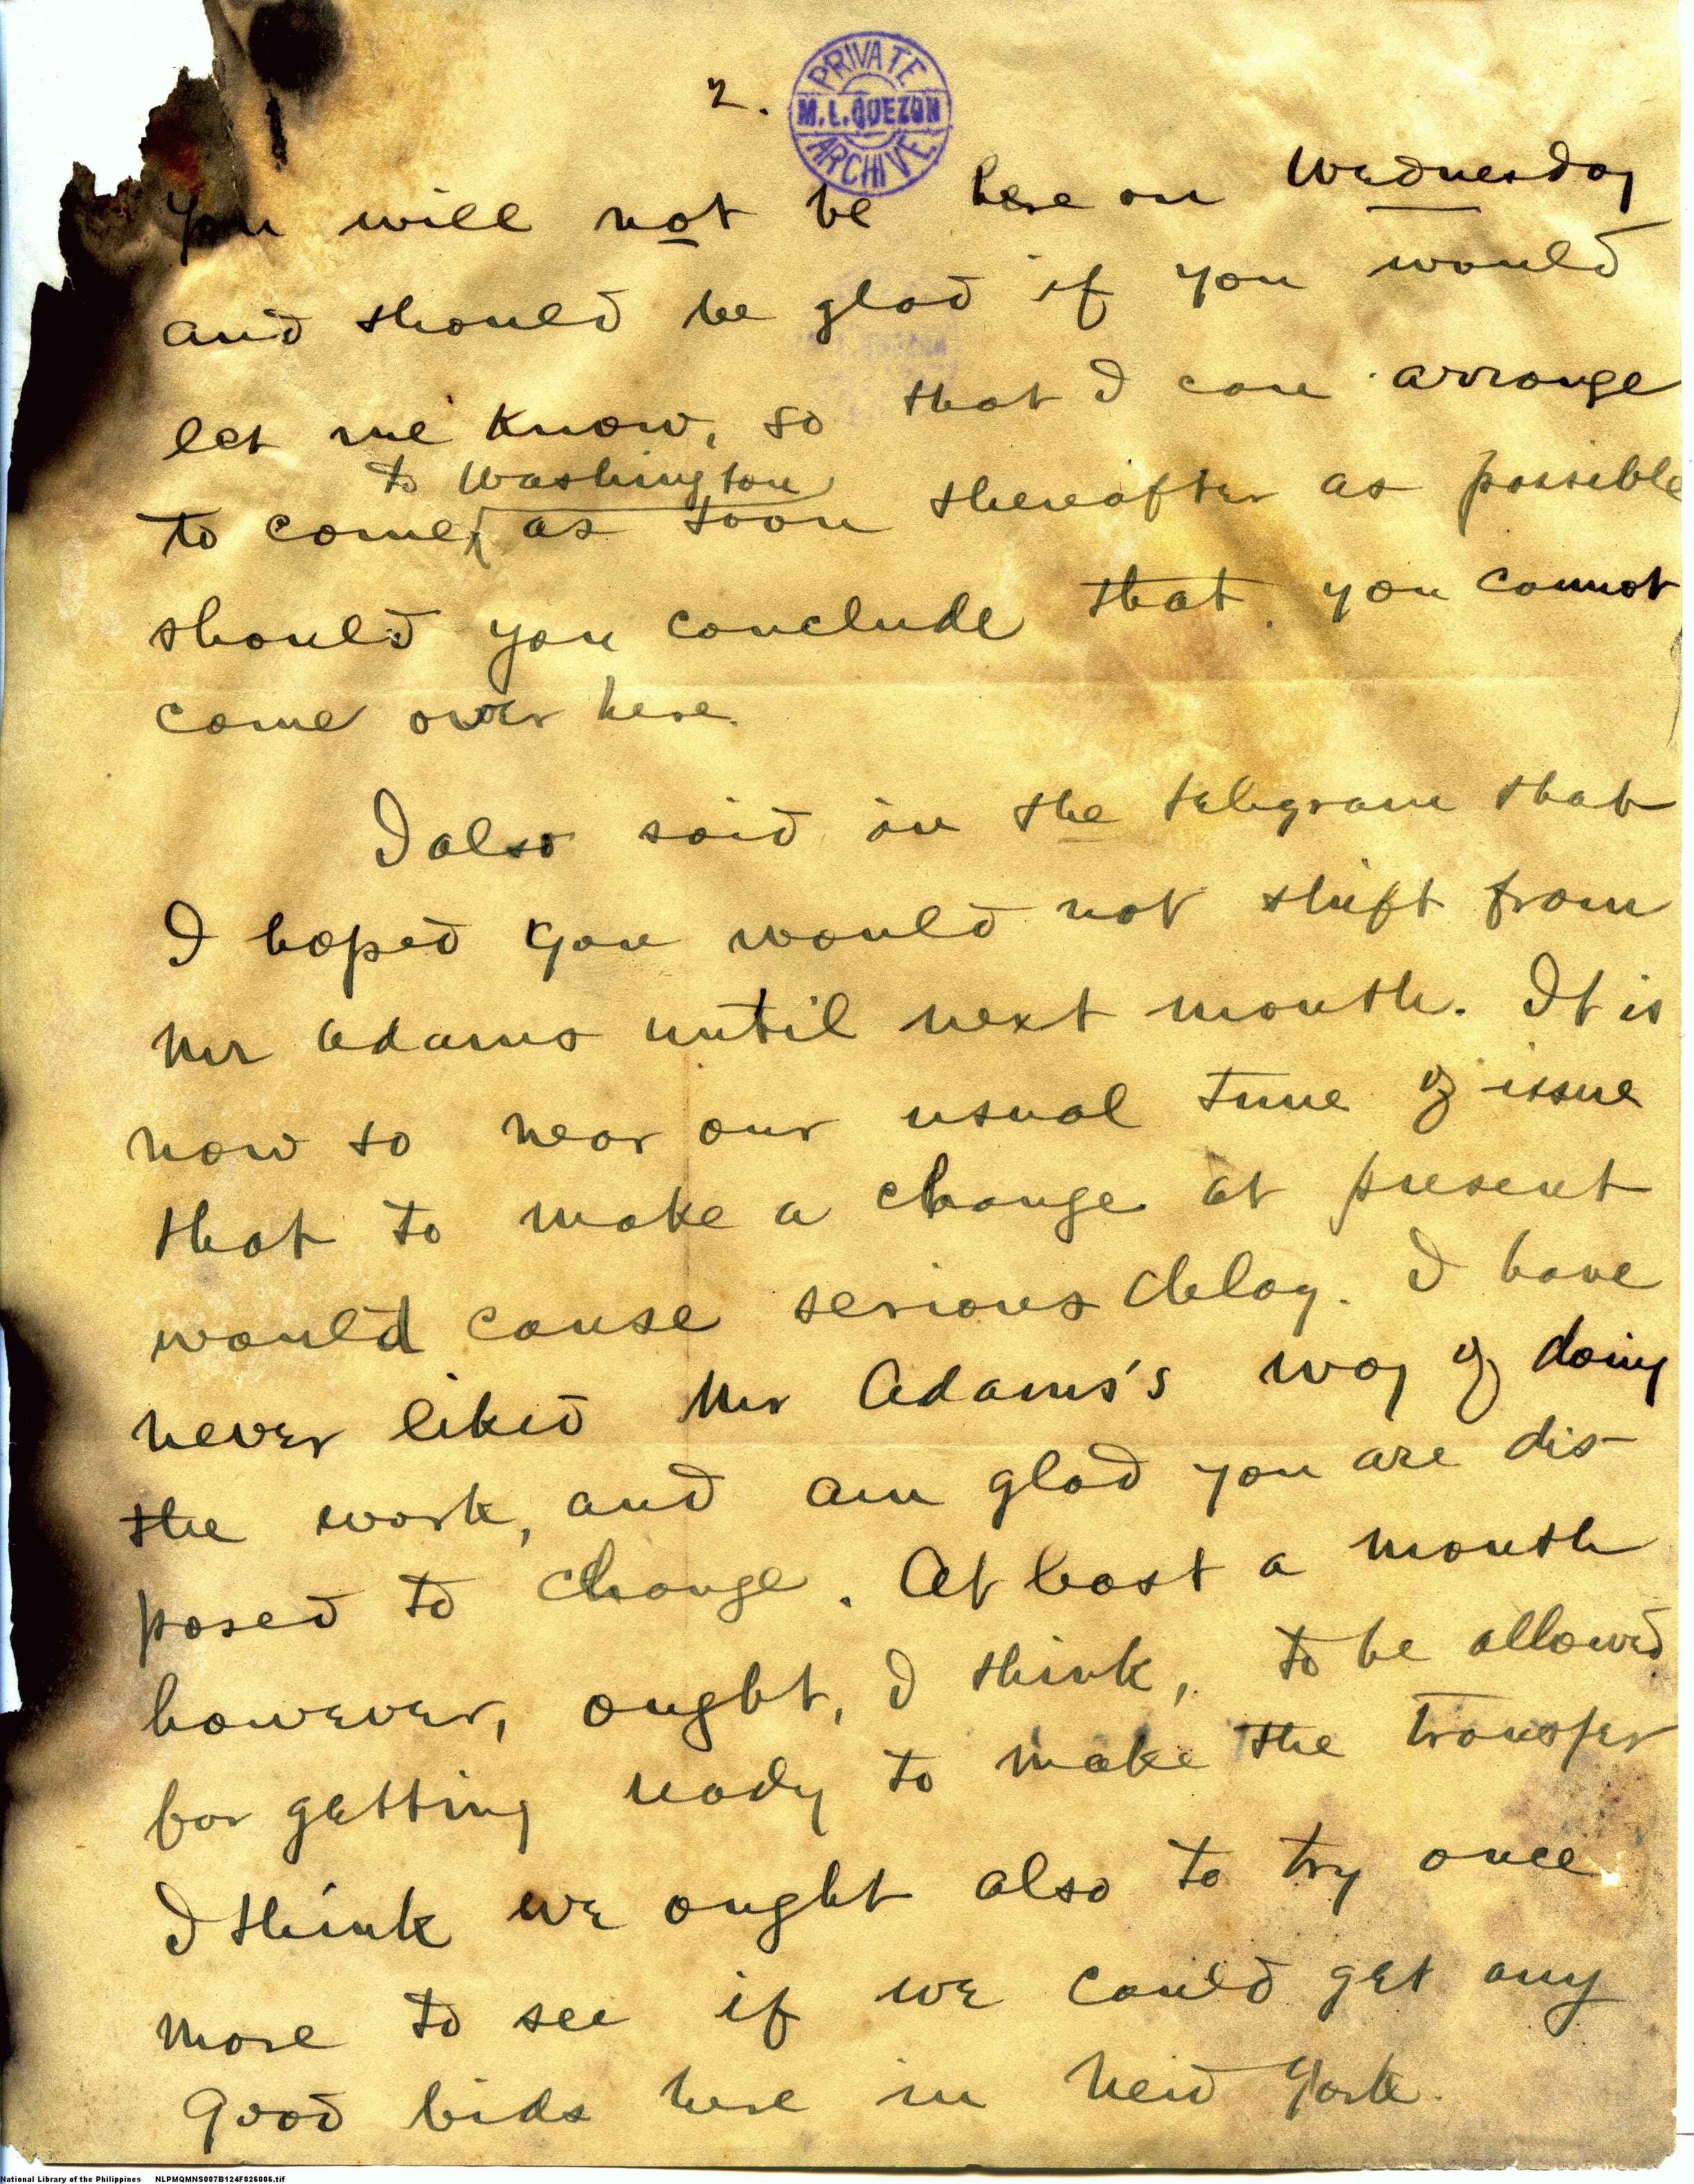 2.
PRIVATE
M.L.QUEZON
ARCHIVE
You will not be here on Wednesday
and should be glad if you would
let me know, so that I can arrange
to Washington
to come as soon thereafter as possible
should you conclude that you cannot
come over here.
I also said in the telegram that
I hoped you would not shift from
Mr Adams until next month. It is
now so near our usual time of issue
that to make a change at present
would cause serious delay. I have
never liked Mr Adams's way of doing
the work, and am glad you are dis-
posed to change. At least a month
however, ought, I think, to be allowed
for getting ready to make the transfer
I think we ought also to try once
more to see if we could get any
good bids here in New York.
National Library of the Philippines NLPMQMNS007B124F026006.tif